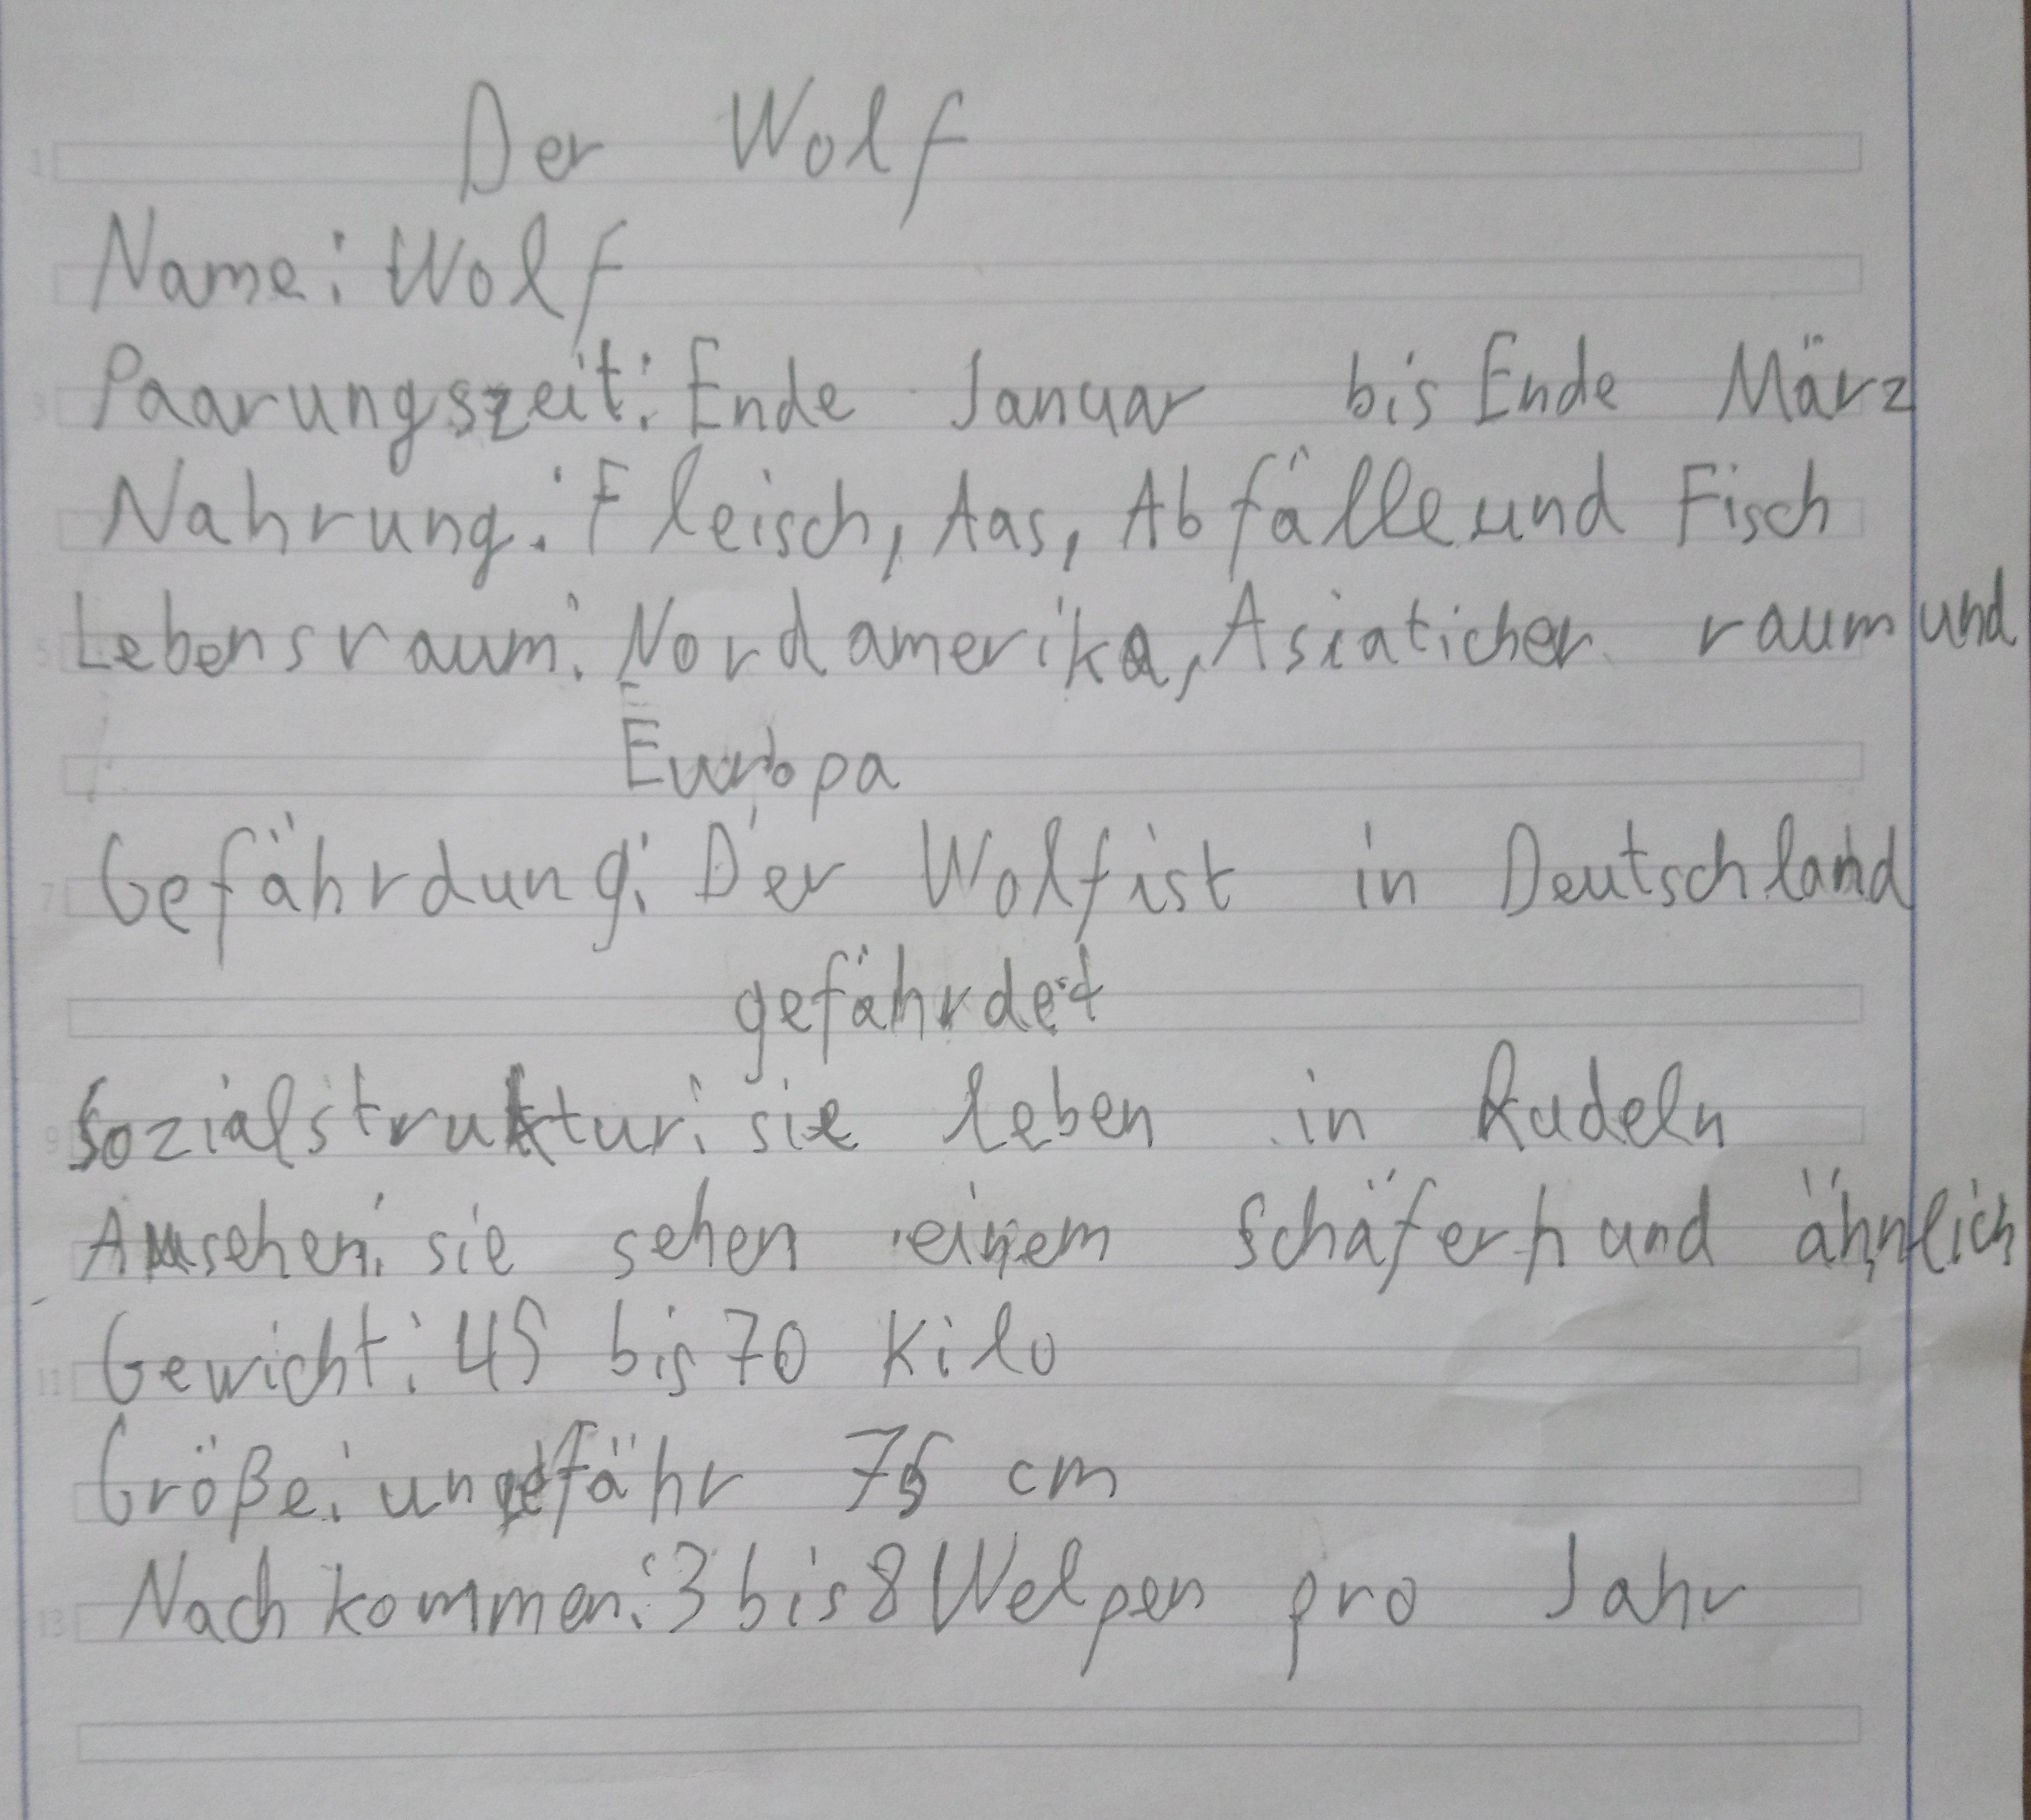 Der Wolf
Name: Wolf
Paarungszeit: Ende Januar bis Ende März
Nahrung: Fleisch, Aas, Abfälle und Fisch
Lebensraum: Nordamerika, Asiaticher raum und
Europa
Gefährdung: Der Wolf ist in Deutschland
gefährdet
Sozialstruktur: sie leben in Rudeln
Aussehen: sie sehen einem Schäferhund ähnlich
Gewicht: 45 bis 70 Kilo
Größe: ungefähr 75 cm
Nachkommen: 3 bis 8 Welpen pro Jahr